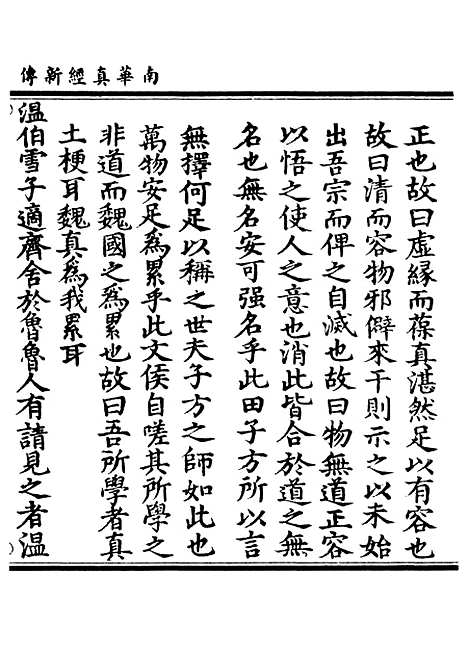 南華真經新傳
正也故曰虛緣而葆真湛然足以有容也
故曰清而容物邪僻來干則示之以未始
出吾宗而俾之自滅也故曰物無道正容
以悟之使人之意也消此皆合於道之無
名也無名安可强名乎此田子方所以言
無擇何足以稱之世夫子方之師如此也
萬物安足為累乎此文侯自嗟其所學之
非道而魏國之為累也故曰吾所學者真
土梗耳魏真為我累耳
溫伯雪子適齊舍於魯魯人有請見之者溫